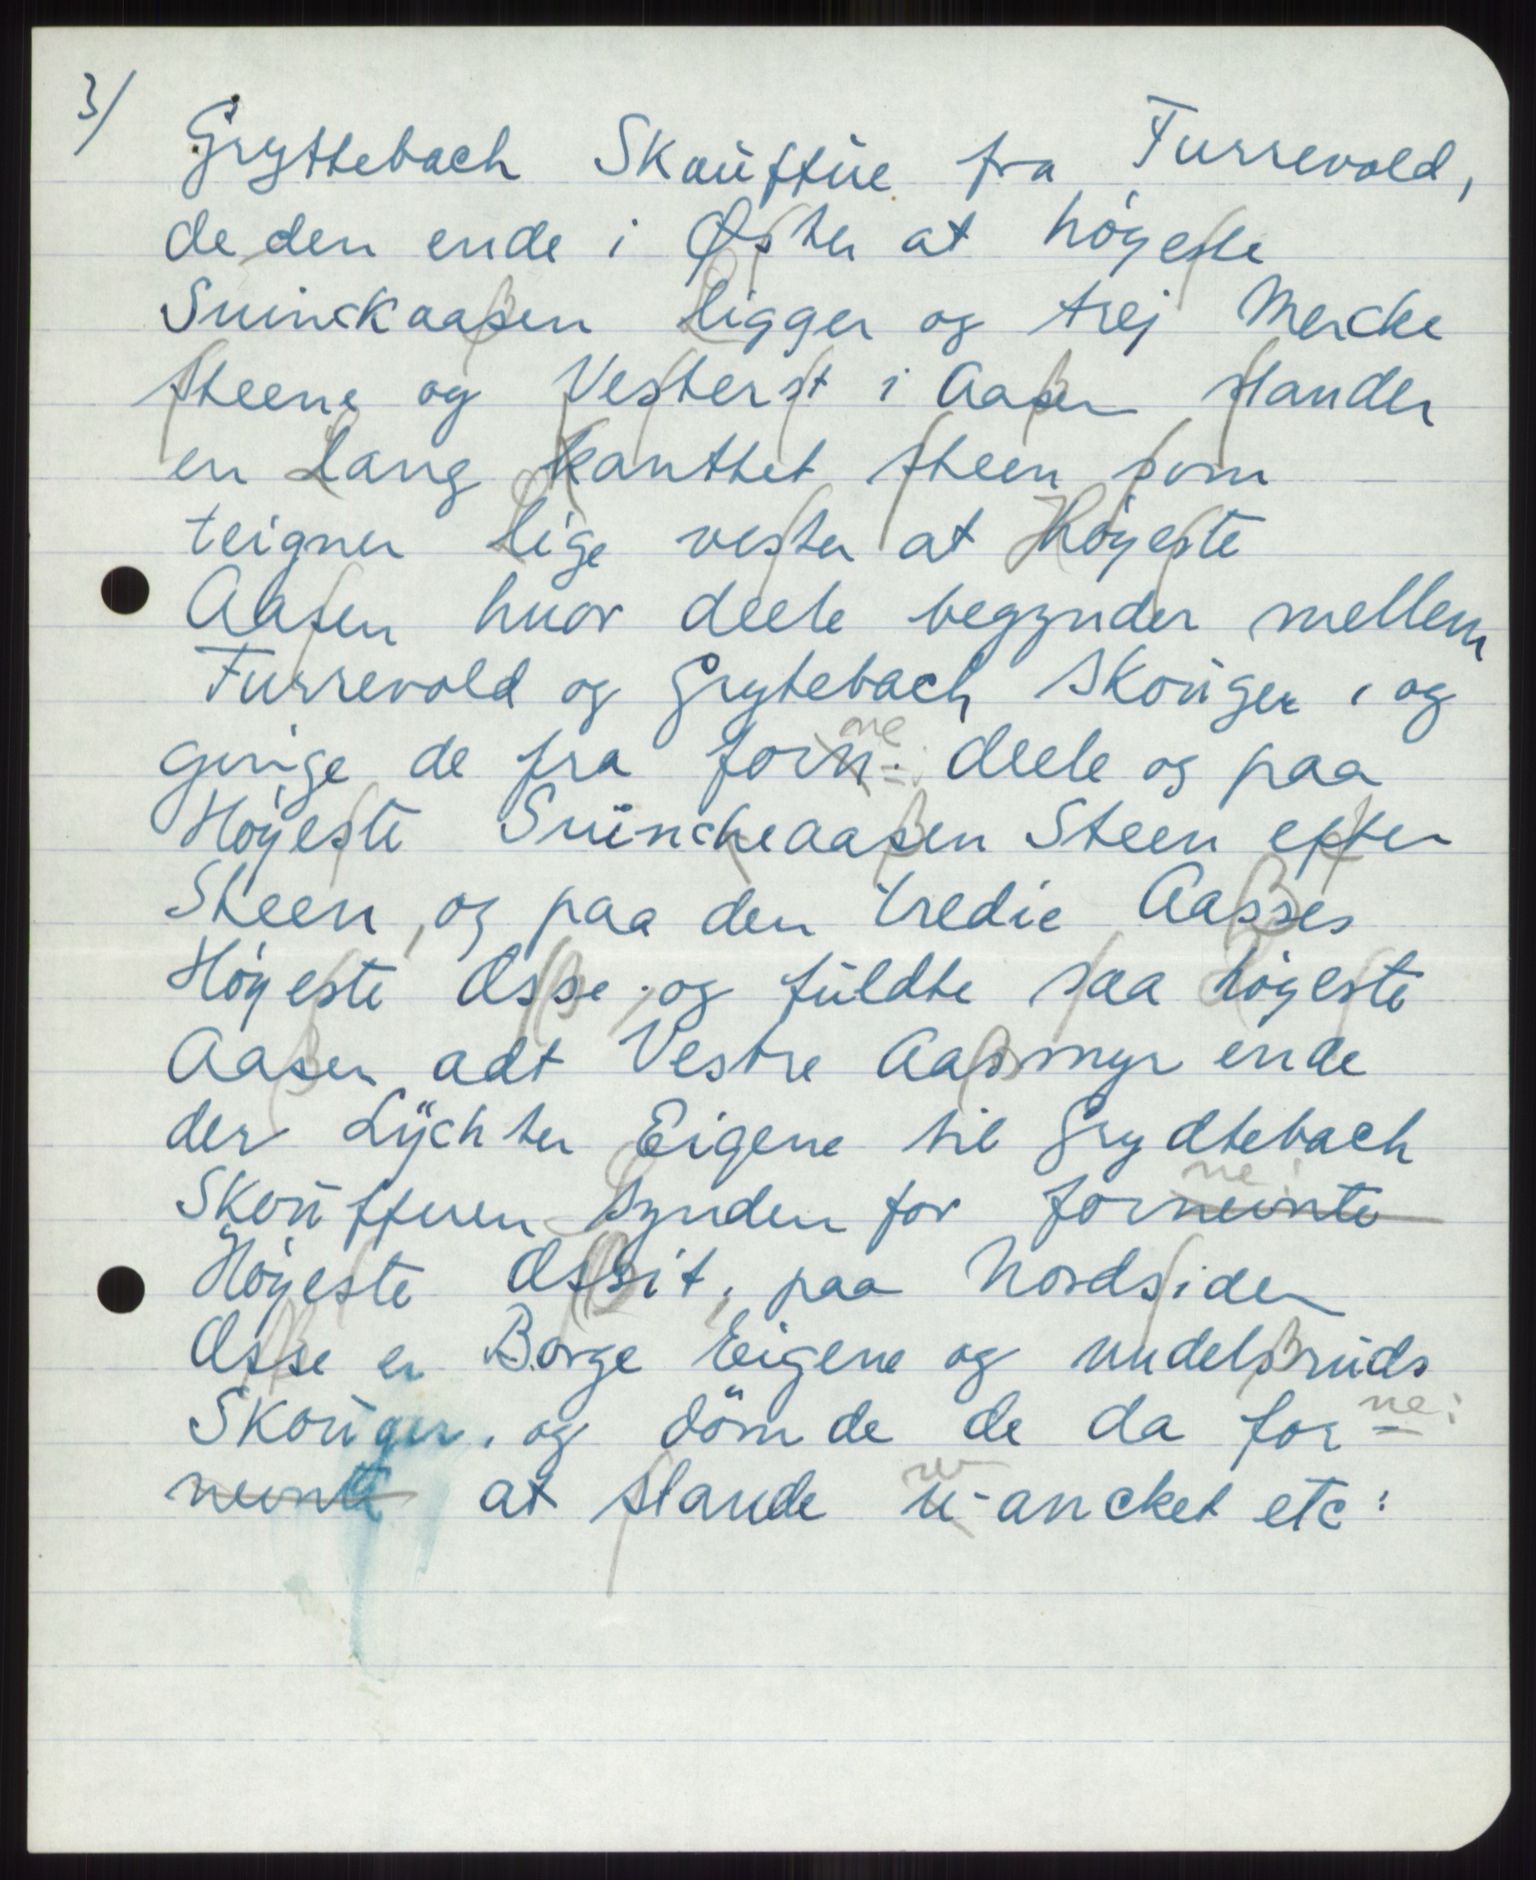 3/
Gryttebach Skouffüe fra Furrevold,
deden ende i Øster at høyeste
Suinckaaßen Ligger og trej Mercke
steene og Vesterst i Aaßen stander
en Lang kanttet steen som
teigner Lige vester at Høyeste
Aasen huor deele begynder mellem
Furrevold og Grytebach Skouger, og
ginge de fra forne: deele og paa
Høyeste Suinckeaaßen Steen efter
Steen, og paa den tredie Aaßes
Høyeste Aßße, og fuldte saa høyeste
Aaßen adt Vestre Aaßmyr ende
der Lÿchter Eigene til Grydtebach
Skouffuen Synden for forne:
Høyeste Aßßit, paa Nordsiden
Aßße er Borge Eigene og undelßruds
Skouger, og dömde de da forne:
at stande w-ancket etc: